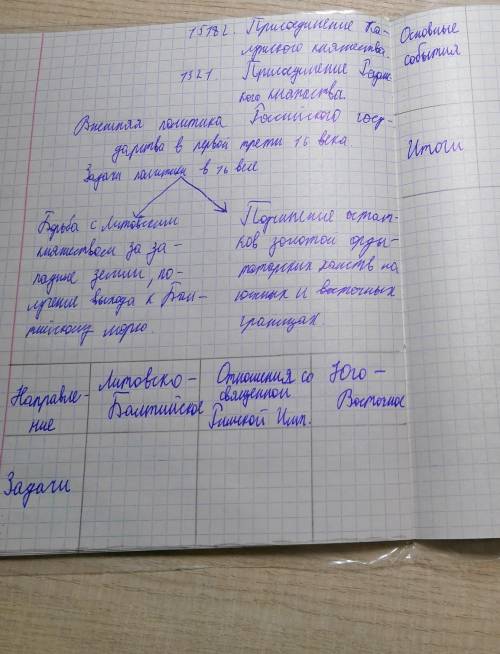 1518г. Присоединение Ка-
лужского княжества.
1521. Присоединение Рязан-
кого княжества.
Внешняя политика Российского госу-
дарства в первой трети 16 века.
Задачи политики в 16 веке
Борьба с Литовским
княжеством за за-
падные земли, по-
лучение выхода к Бал-
тийскому морю
Подчинение остат-
ков золотой орды -
татарских ханств на
южных и восточных
границах.
Направле-
ние
Литовско -
Балтийское
Отношения со
священной
Римской Имп.
Юго -
Восточное
Задачи
Основные
события
Итоги